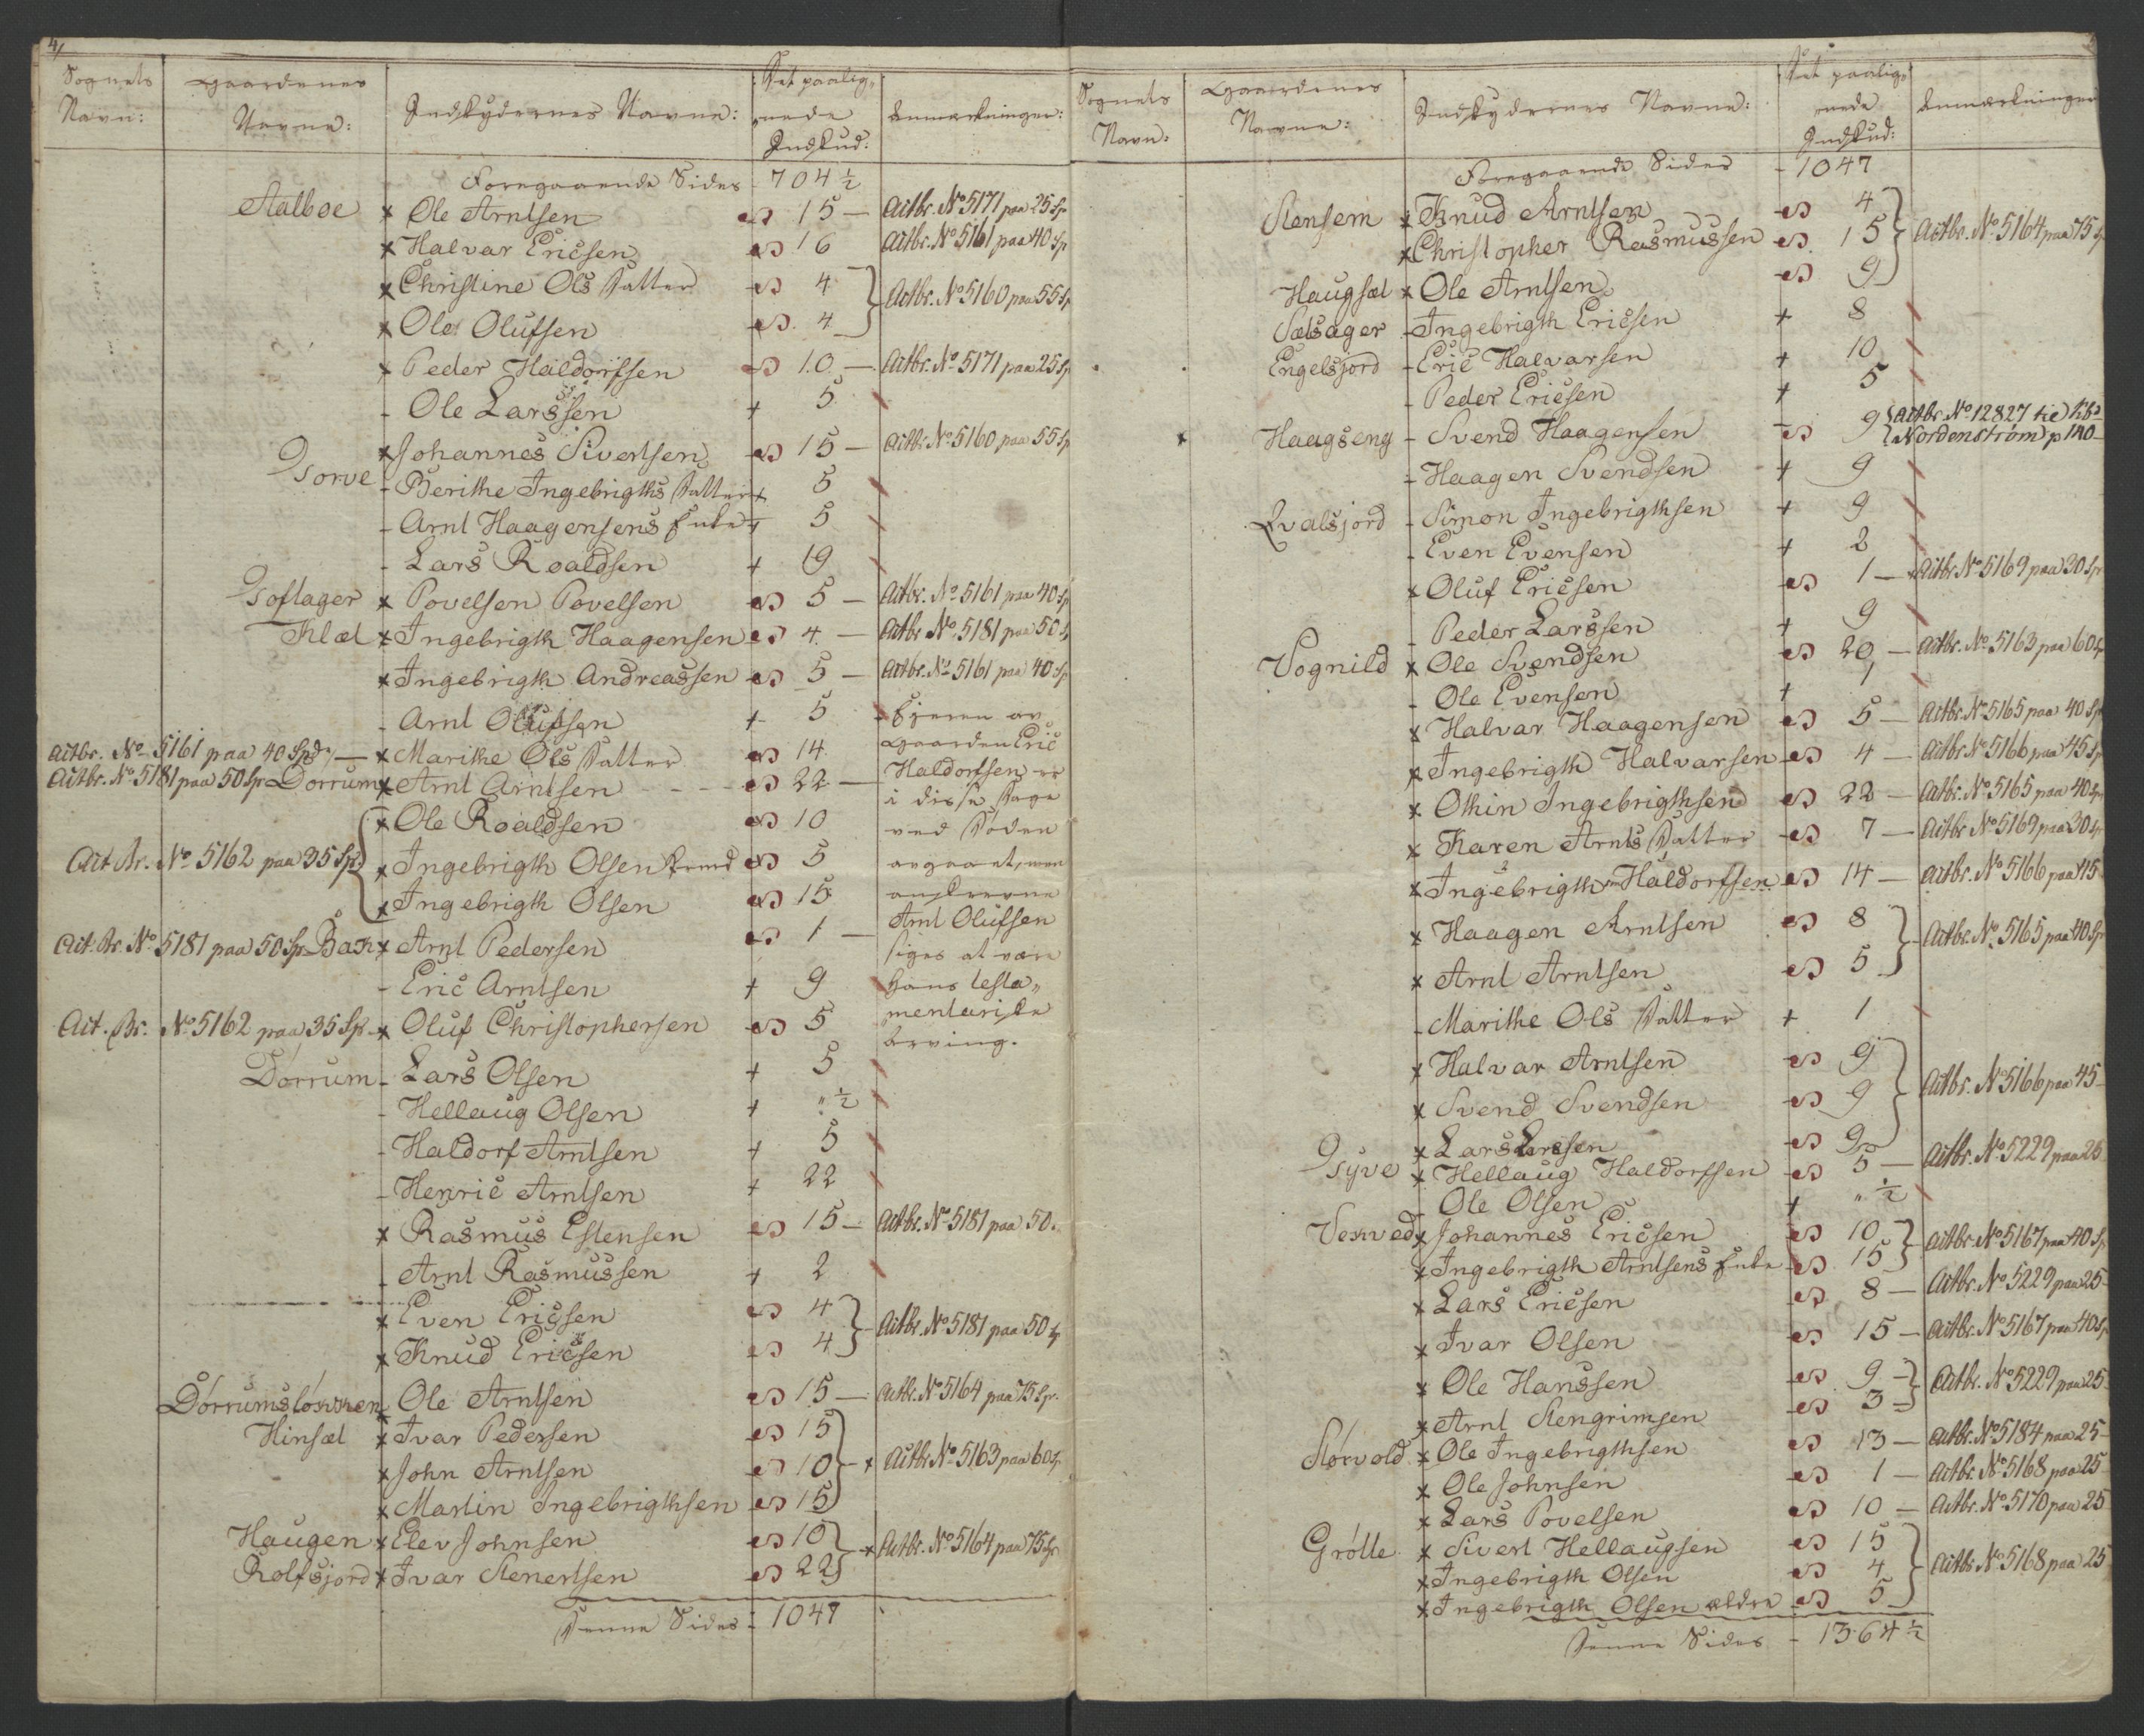 4/
Sognets Navn: Gaardenes Navne: Indskydernes Navne: Det paalignede Indskud: Anmærkninger:
Foregaaende Sides - 704 ½
Aalboe × Ole Arntsen 15 — Actbr. No 5171 paa 25 Sp
× Halvar Ericsen 16 Actbr. No 5161 paa 40 Sp
× Christine Ols Datter 4 } Actbr. No 5160 paa 55 Sp
× Ole Olufsen 4
× Peder Haldorfsen 10 — Actbr. No 5171 paa 25 Sp
- Ole Larssen + 5
× Johannes Sivertsen 15 — Actbr. No 5160 paa 55 Sp
Gorve - Berithe Ingebrigths Datter + 5
- Arnt Haagensens Enke + 5
- Lars Roaldsen + 19
Goflager × Povelsen Povelsen 5 — Actbr. No 5161 paa 40 Sp
Klæt × Ingebrigth Haagensen 4 — Actbr No 5181 paa 50 S
× Ingebrigth Andreassen 5 — Actbr. No 5161 paa 40 Sp
- Arnt Olufsen + 5 Ejeren av
Actbr. No 5161 paa 40 Spd — × Marithe Ols Datter 14 Gaarden Eric
Actbr. No 5181 paa 50 Sp Dorrum × Arnt Arntsen - - - 22 — Haldorfsen er
× Ole Roaldsen 10 i disse Dage ved Døden
Act Br. No 5162 paa 35 Sp { × Ingebrigth Olsen 5 avgaaet, men
× Ingebrigth Olsen 15 anskrevne
Act. Br. No 5181 paa 50 Sp Bak × Arnt Pedersen 1 — Arnt Olufsen siges at være
- Eric Arntsen + 9 hans testa„
Act. Br. No 5162 paa 35 Sp - × Oluf Christophersen 5 mentariske Arving.
Dorrum - Lars Olsen + 5
- Hellaug Olsen + „ ½
- Haldorf Arntsen + 5
- Henric Arntsen + 22
× Rasmus Estensen 15 — Actbr. No 5181 paa 50.
- Arnt Rasmussen + 2
× Even Ericsen 4 } Actbr. No 5181 paa 50 Sp
× Knud Ericsen 4
Dórrumsløkken × Ole Arntsen 15 — Actbr. No 5164 paa 75 Sp.
Hinsæt × Ivar Pedersen 15
× John Arntsen 10 } × Actbr. No 5163 paa 60 Sp
× Martin Ingebrigthsen 15
Haugen × Elev Johnsen 10 } × Actbr. No 5164 paa 75 Sp
Rolfsjord × Ivar Stenertsen 22
Denne Sides - 1047
Sognets Navn: Gaardenes Navne: Indskydernes Navne: Det paalignede Indskud: Anmærkninger
Foregaaende Sides - 1047
Stensem × Knud Arntsen 4
× Christopher Rasmussen 15 } Actbr. No 5164 paa 75 Sp
Haugsæt × Ole Arntsen 9
Sætsager - Ingebrigth Ericsen + 8
Engelsjord - Eric Halvarsen + 10
- Peder Ericsen + 5
Haagseng - Svend Haagensen 9 { Actbr No 12827 til
Nordenstrøm p 140
- Haagen Svendsen + 9
Qvalsjord - Simon Ingebrigthsen + 9
- Even Evensen + 2
× Oluf Ericsen 1 — Actbr. No 5169 paa 30 Sp
- Peder Larssen + 9
Vognild × Ole Svendsen 20 — Actbr. No 5163 paa 60 Sp
- Ole Evensen + 1
× Halvar Haagensen 5 — Actbr. No 5165 paa 40 Sp
× Ingebrigth Halvarsen 4 — Actbr. No 5166 paa 45 Sp
× Othin Ingebrigthsen 22 — Actbr. No 5165 paa 40 Sp
× Karen Arnts Datter 7 — Actbr No 5169 paa 30 Sp
× Ingebrigth Haldorfsen 14 — Actbr. No 5166 paa 45
× Haagen Arntsen 8 } Actbr. No 5165 paa 40 Sp
× Arnt Arntsen 5
- Marithe Ols Datter + 1
× Halvar Arntsen 9 } Actbr. No 5166 paa 45
× Svend Svendsen 9
× Lars Larssen 9
Gyve × Hellaug Haldorfsen 5 — Actbr. No 5229 paa 25
- Ole Olsen + „ ½
Vekved × Johannes Ericsen 10 } Actbr. No 5167 paa 40 Sp
× Ingebrigth Arntsens Enke 15
× Lars Ericsen 8 — Actbr. No 5229 paa 25
× Ivar Olsen 15 — Actbr. No 5167 paa 40 Sp
× Ole Hanssen 9 } Actbr. No 5229 paa 25
× Arnt Stengrimsen 3
Størvold × Ole Ingebrigthsen 13 — Actbr. No 5184 paa 25
× Ole Johnsen 1 — Actbr. No 5168 paa 25
× Lars Povelsen 10 — Actbr. No 5170 paa 25
Grótte × Sivert Hellaugsen 15
× Ingebrigth Olsen 4 } Actbr No 5168 paa 25
× Ingebrigth Olsen ældre 5
Denne Sides - 1364 ½